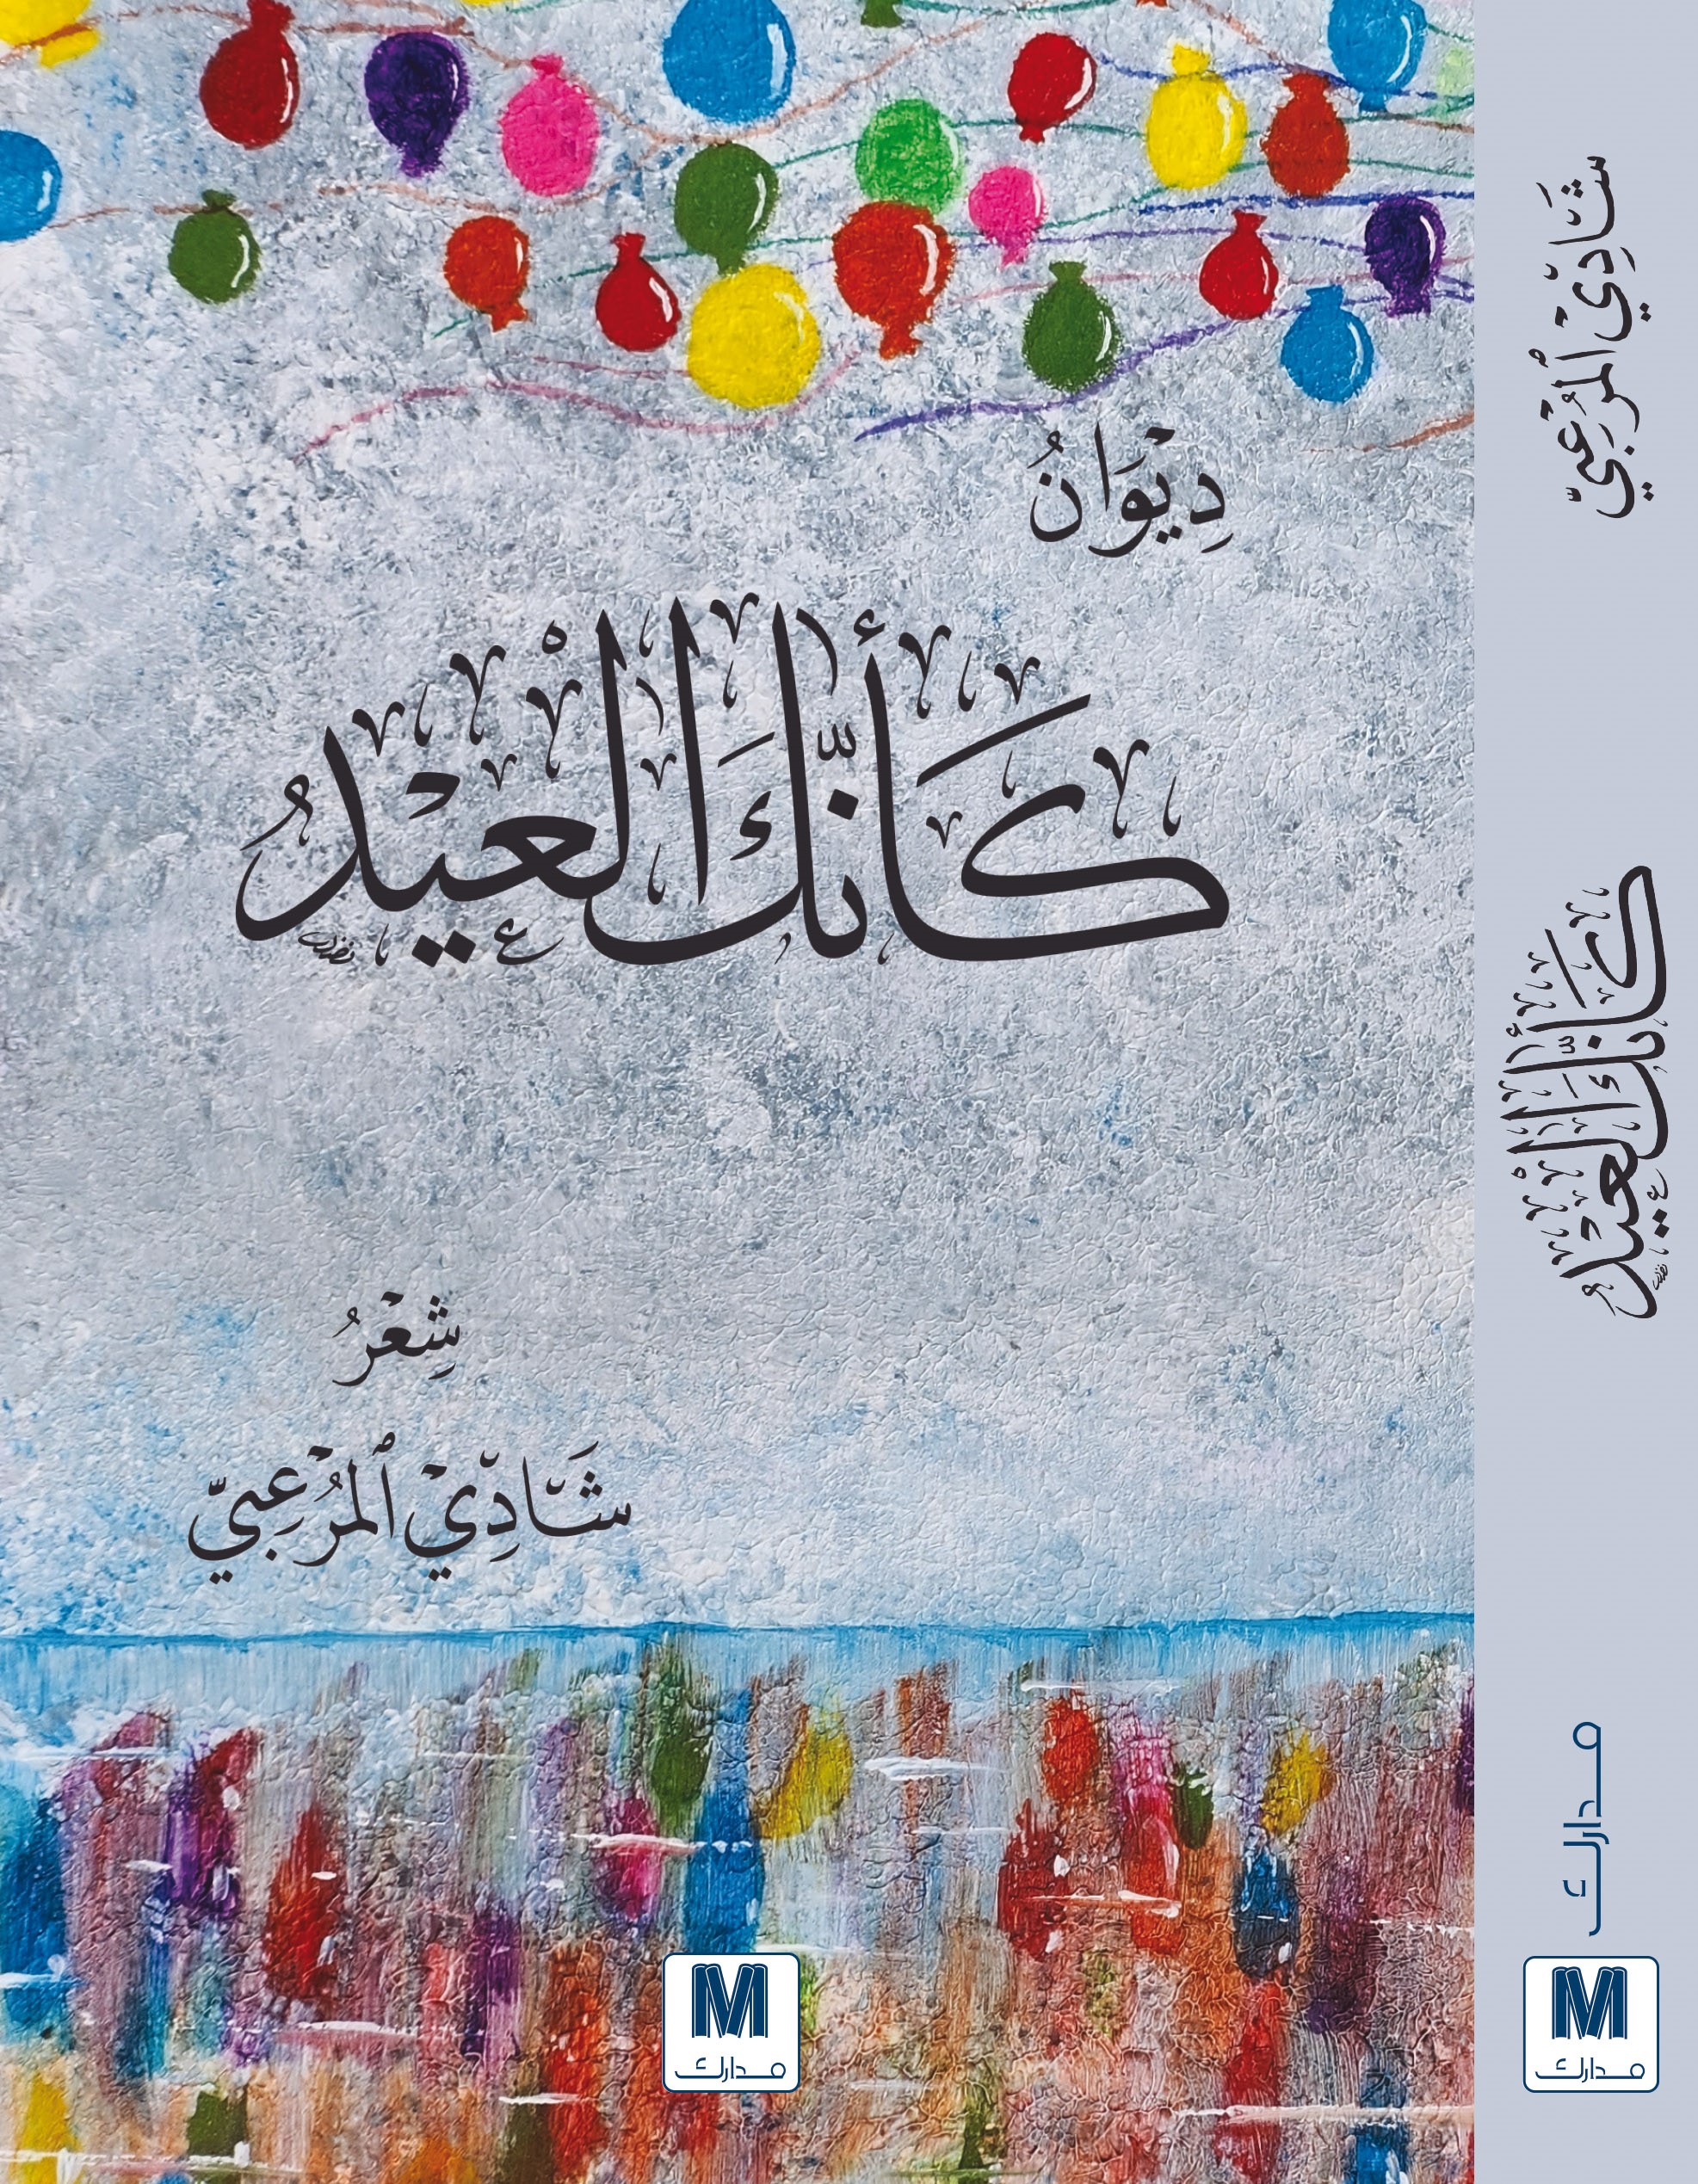 دِيْوَانُ
كَأَنَّكَ الْعِيْدُ
شِعْرُ
شَادِّيْ ٱلمُرْعِبِيّ
M
مدارك
شَادِيْ ٱلمُرْعِبِيّ
كَأَنَّكَ الْعِيْدُ
مدارك
M
مدارك